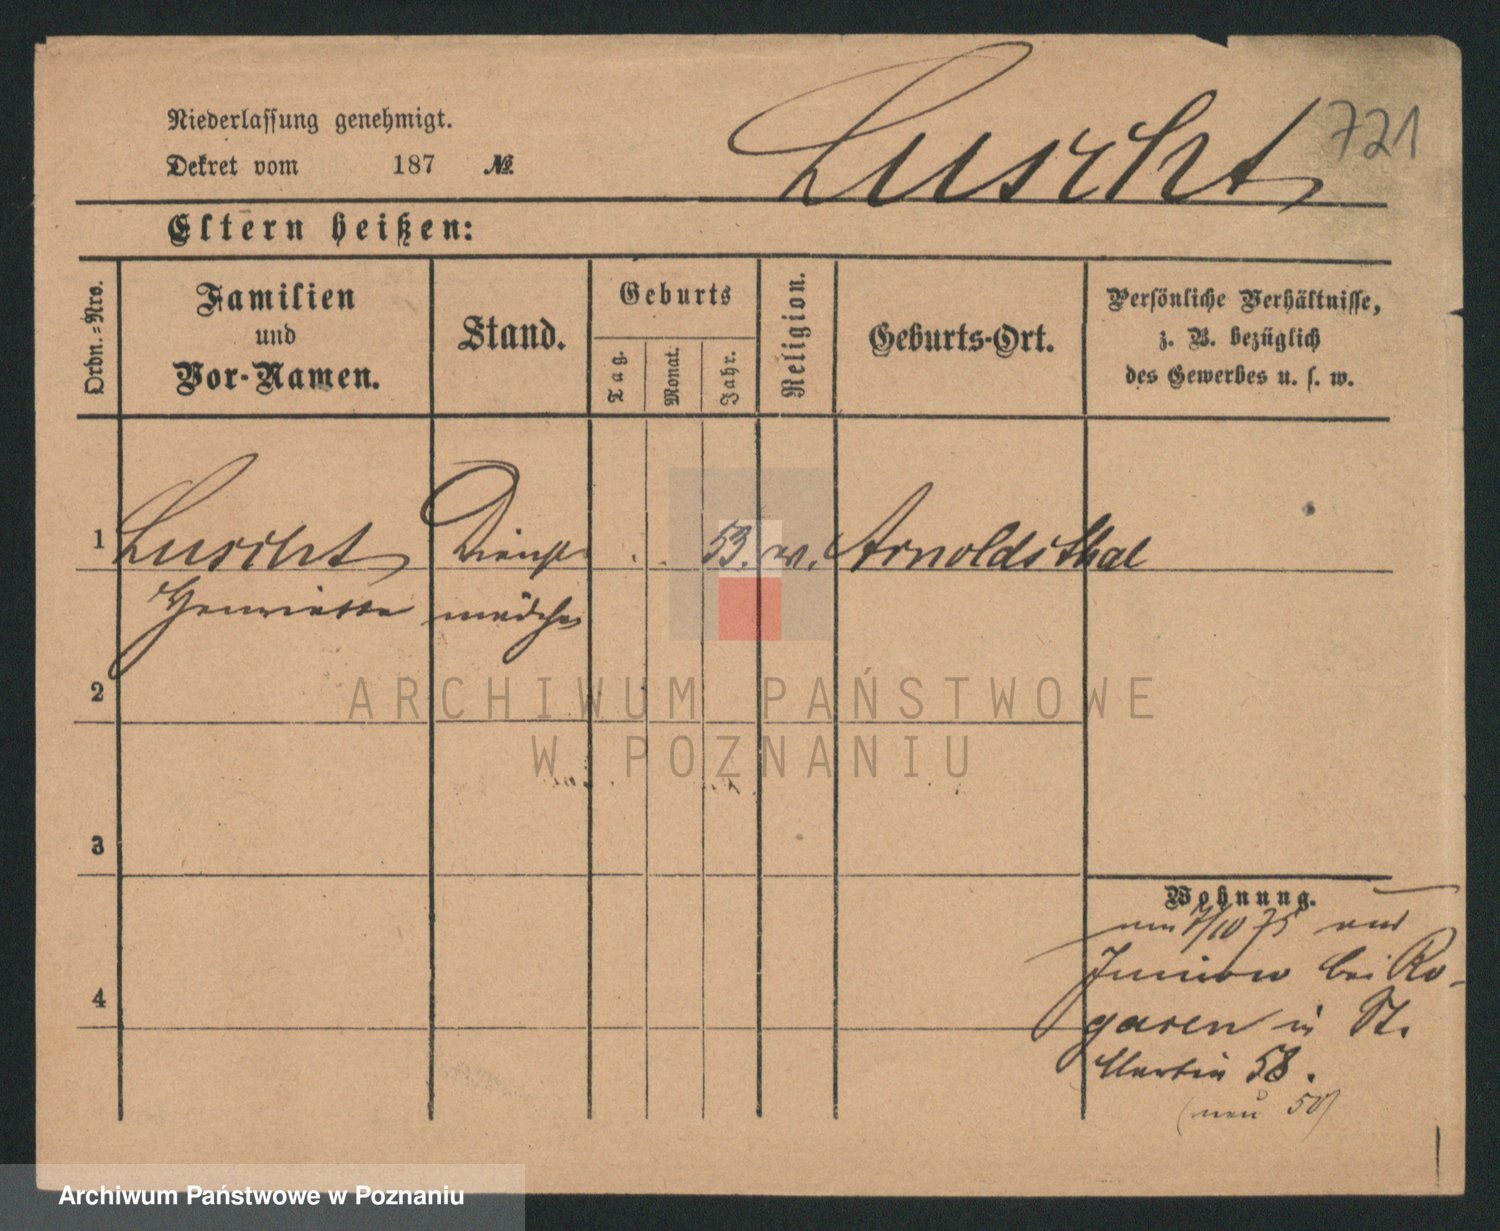 Niederlassung genehmigt.
Luscht
721
Dekret vom 187 №
Eltern heißen:
Ordn.=Nro.
Familien
und
Vor-Namen.
Stand.
Geburts
Tag.
Monat.
Jahr.
Religion.
Geburts-Ort.
Persönliche Verhältnisse,
z. B. bezüglich
des Gewerbes u. s. w.
1 Luscht Dienst 53. Arnoldsthal
Henriette mädchen
2
ARCHIWUM PAŃSTWOWE
W POZNANIU
3
4
Wohnung.
7/10 75 aus
bei Ro-
gasen in St.
Martin 58.
(neu 50)
Archiwum Państwowe w Poznaniu